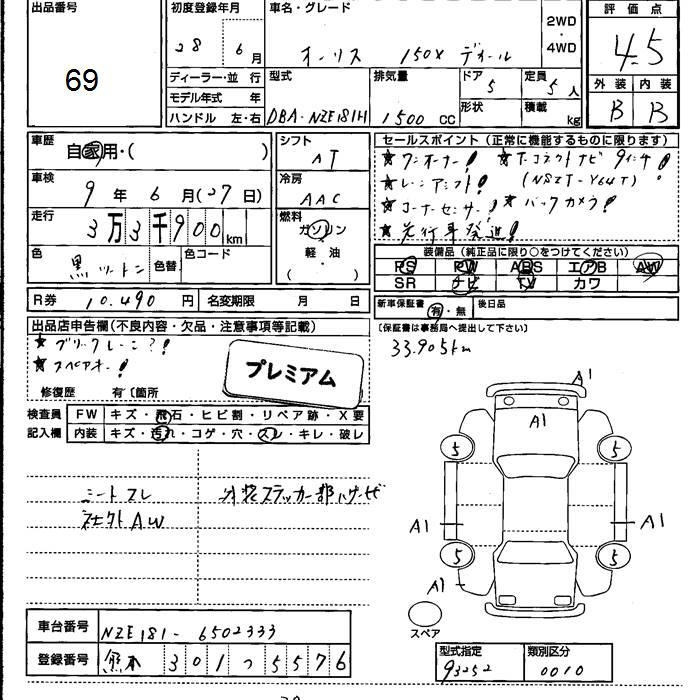 出品番号
69
初度登録年月
28 6月
車名・グレード
オーリス 150X
2WD
4WD
評価点
4.5
外装 内装
B B
ディーラー・並 行
モデル年式 年
ハンドル 左・右
型式
DBA-NZE181H
排気量
1500 CC
ドア
5
形状
定員
5人
積載
kg
車歴
自家用・( )
車検
9年 6月(27日)
走行
3万3千900km
色
黒ツートン
色替
色コード
シフト
AT
冷房
AAC
燃料
ガソリン
軽油
( ・ )
セールスポイント(正常に機能するものに限ります)
★ワンオーナー! ★T-コネクトナビ 9インチ!
★レーンアシスト! (NSZT-Y64T)
★コーナーセンサー! ★バックカメラ!
★先行車発進!
装備品(純正品に限り○をつけてください)
PS PW ABS エアB AW
SR ナビ TV カワ
R券 10,490円
名変期限 月 日
新車保証書 有・無
後日品
〔保証書は事務局へ提出して下さい〕
33,905km
出品店申告欄(不良内容・欠品・注意事項等記載)
★スペアキー!
プレミアム
修復歴 有〔箇所
検査員
記入欄
FW キズ・飛石・ヒビ割・リペア跡・X要
内装 キズ・汚れ・コゲ・穴・スレ・キレ・破レ
シートスレ
外装ステッカー部ハゲ
AW
A1
A1
5 5
A1 A1
5 5
A1
スペア
車台番号 NZE181-6502333
登録番号 熊本 301つ5576
型式指定
93252
類別区分
0010